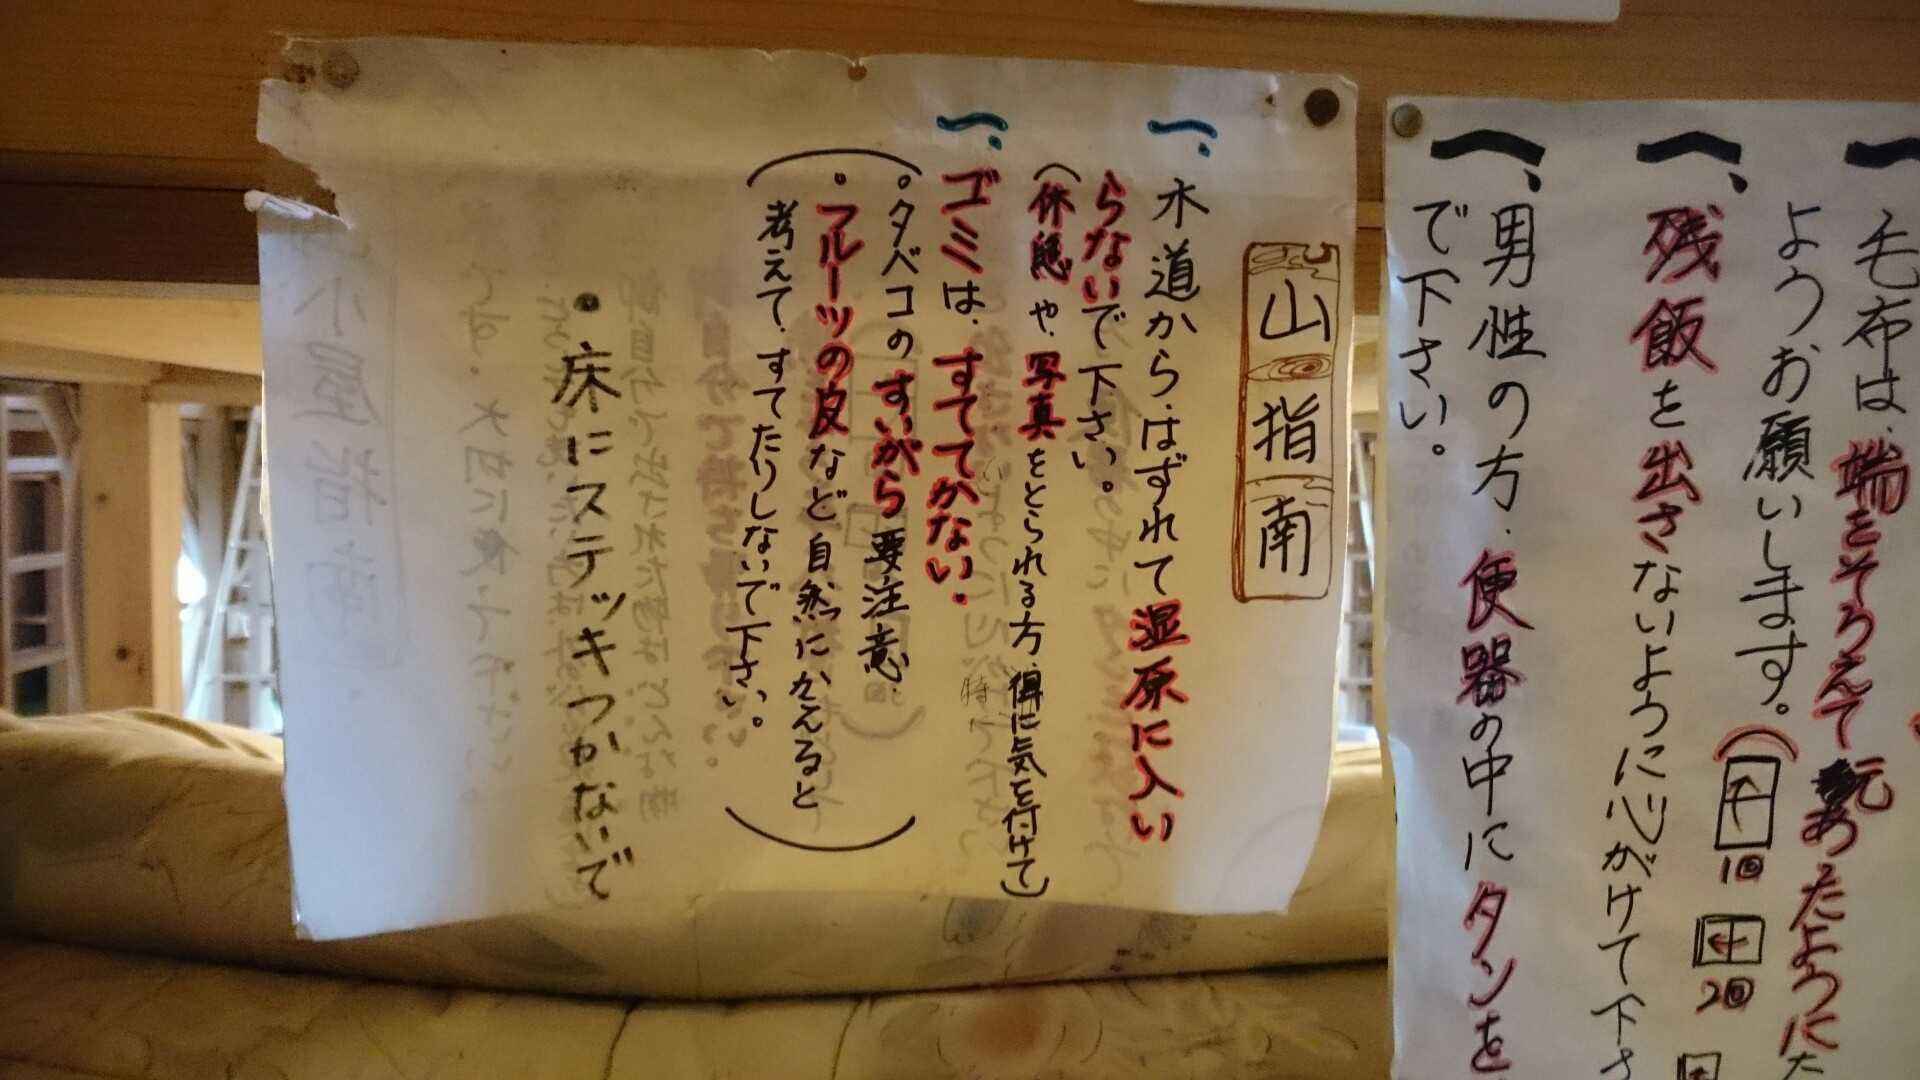 一、毛布は、端をそろえて元あったように
ようお願いします。
1回
2回
一、残飯を出さないように心がけて下さ
一、男性の方、便器の中にタンを
で下さい。
山指南
一、木道からはずれて湿原に入い
らないで下さい。
(休憩や、写真をとられる方、得に気を付けて)
一、ゴミは、すててかない。
(。タバコのすいがら要注意、
。フルーツの皮など、自然にかえると
考えて、すてたりしないで下さい。)
・床にステッキつかないで